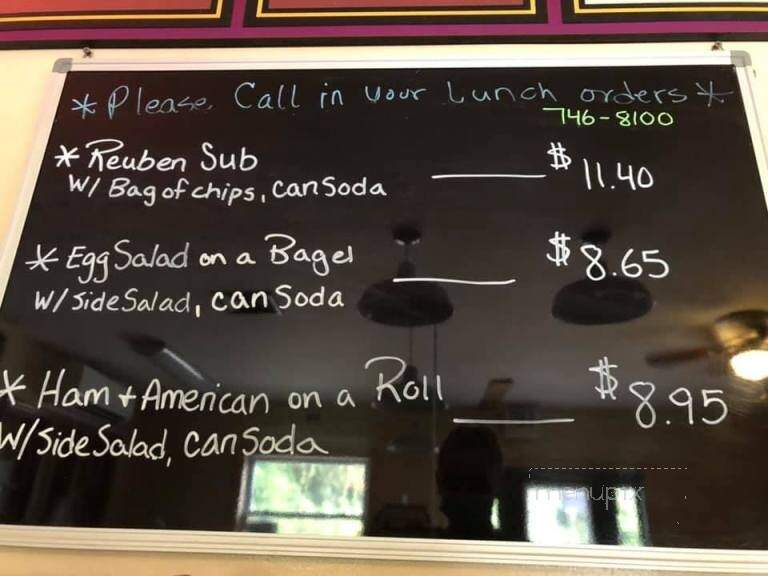 * Please Call in your Lunch orders *
746-8100
* Reuben Sub $ 11.40
W/ Bag of chips, can Soda
* Egg Salad on a Bagel $ 8.65
W/ Side Salad, can Soda
* Ham + American on a Roll $ 8.95
W/ Side Salad, can Soda
menupix